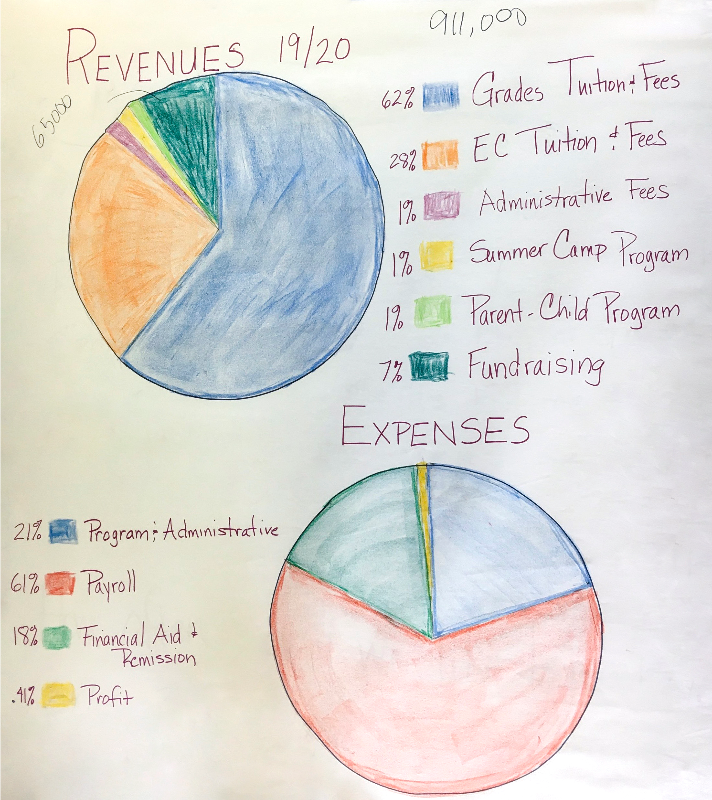 911,000
REVENUES 19/20
65000
62% Grades Tuition & Fees
28% EC Tuition & Fees
1% Administrative Fees
1% Summer Camp Program
1% Parent-Child Program
7% Fundraising
EXPENSES
21% Program & Administrative
61% Payroll
18% Financial Aid &
Remission
.41% Profit